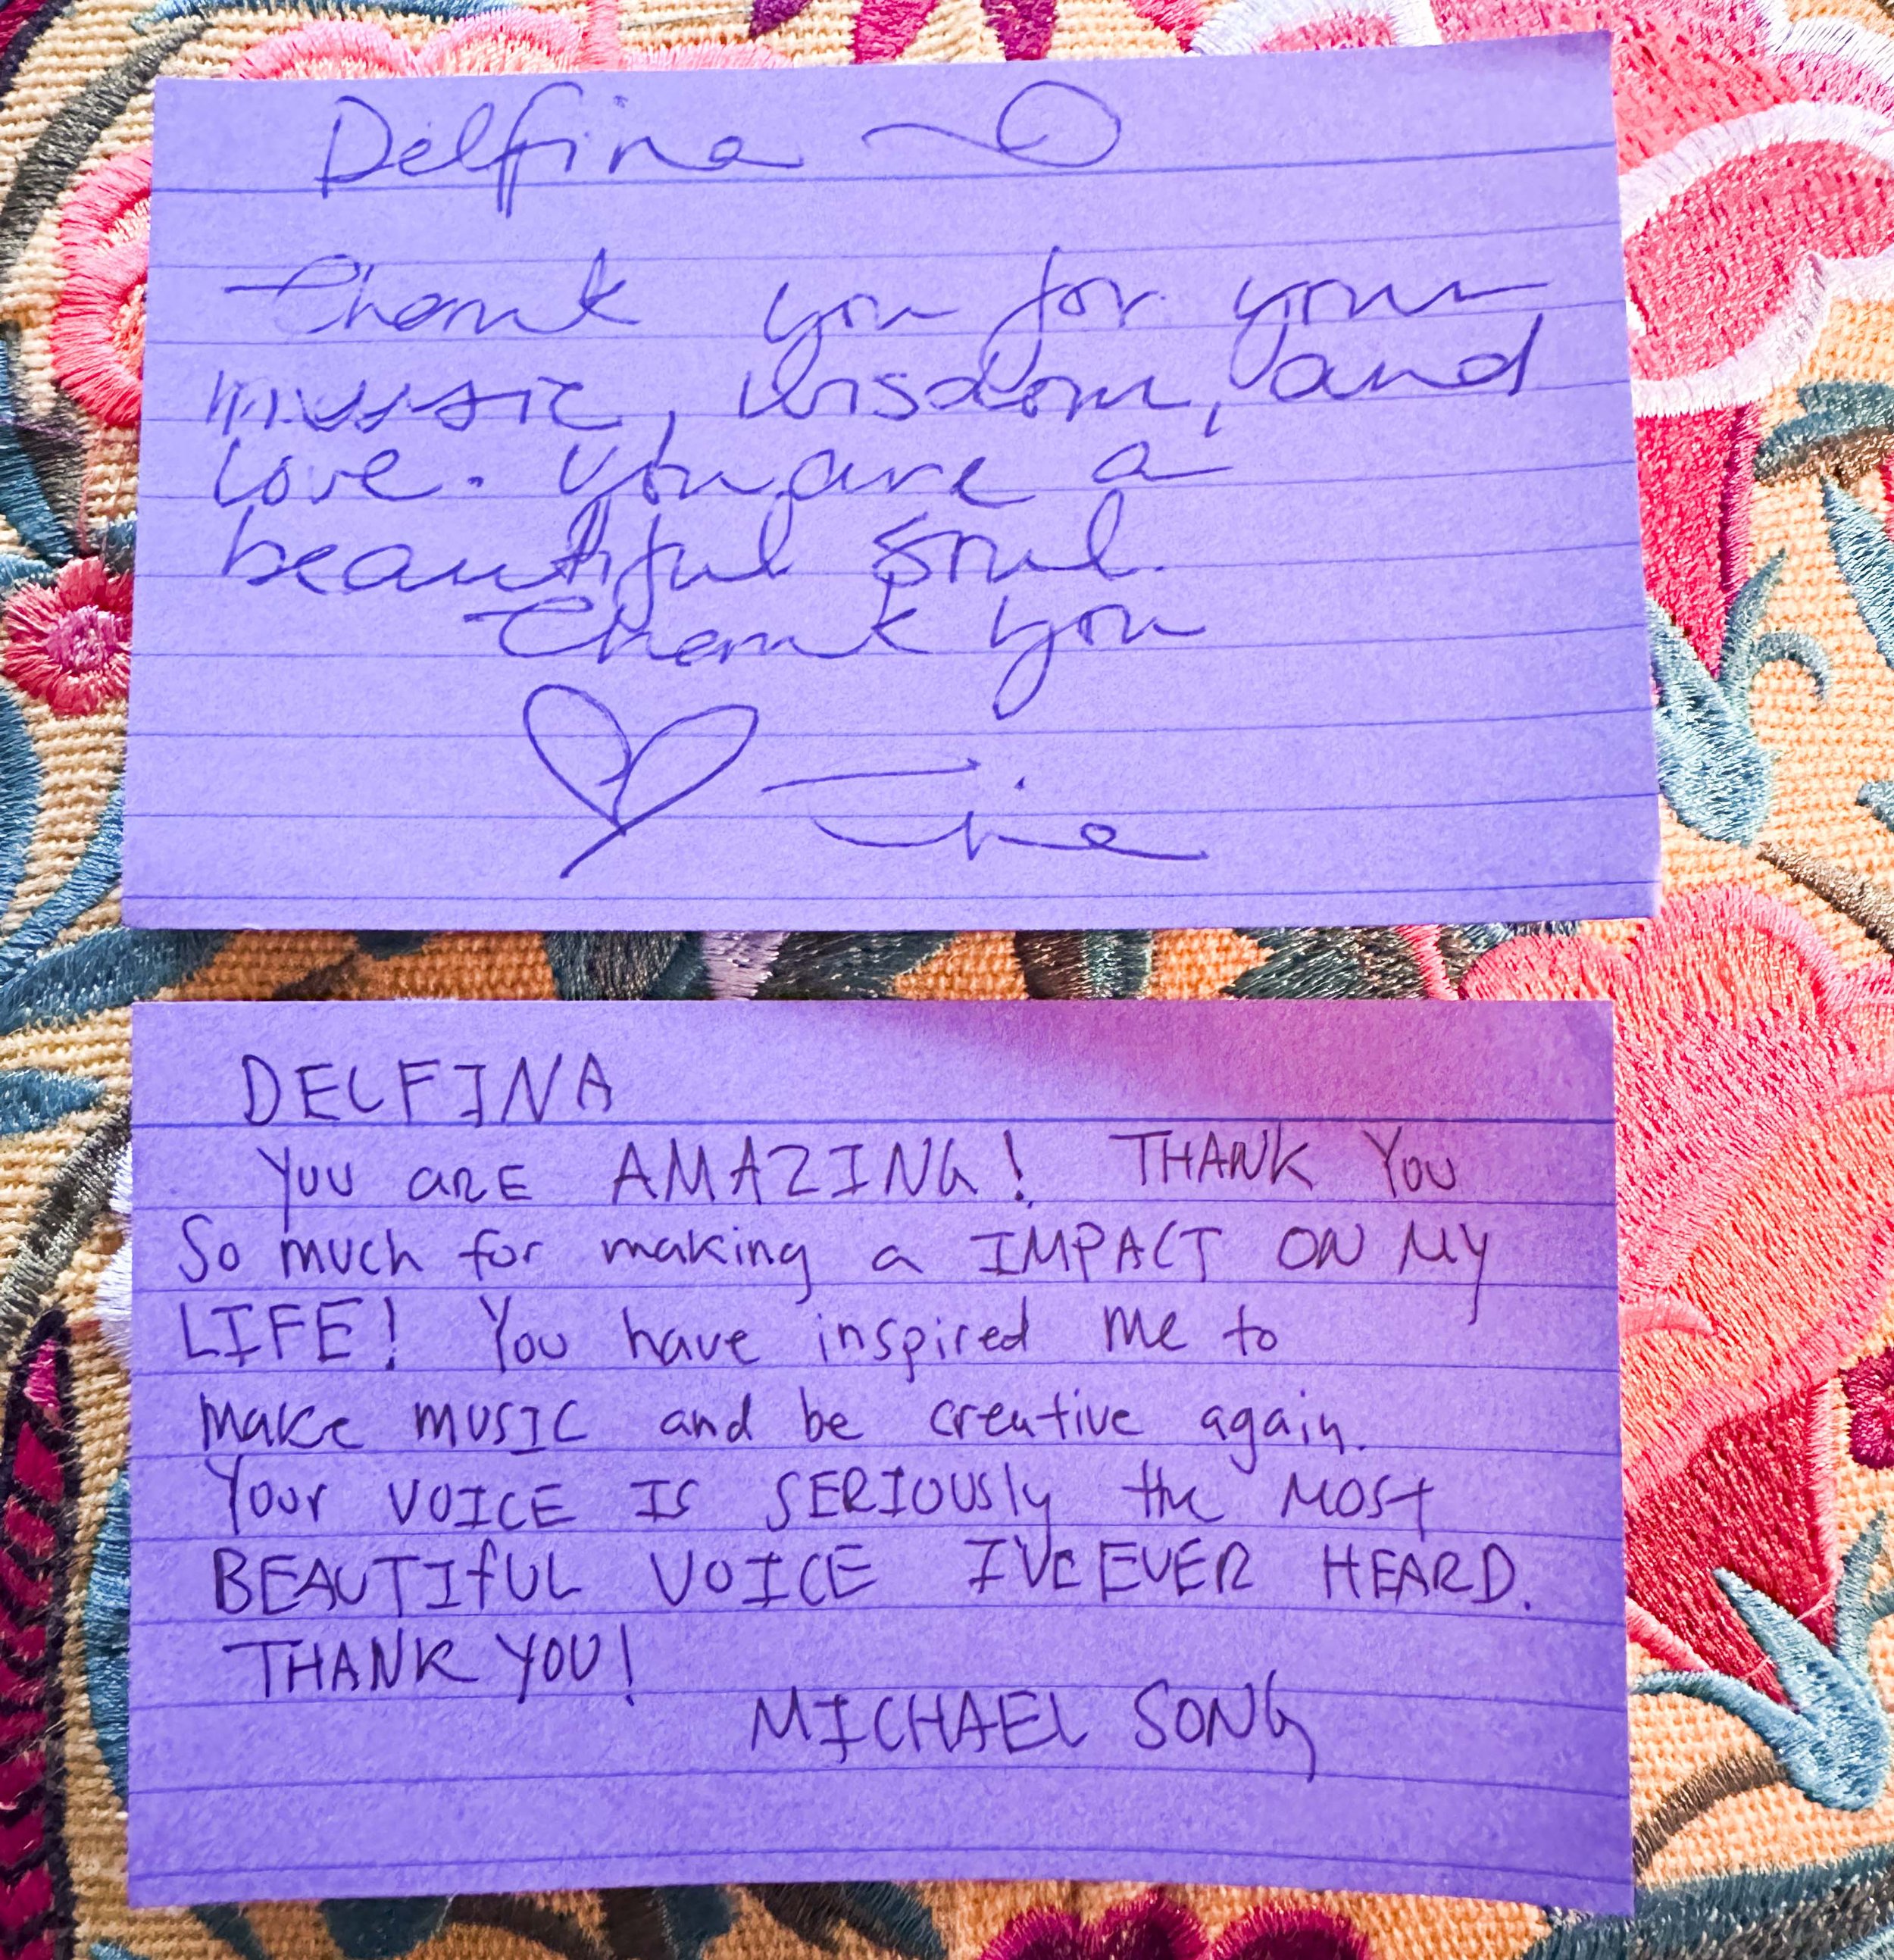 Delfina
Thank you for your
music, wisdom, and
love. You are a
beautiful soul.
Thank you
DELFINA
YOU aRE AMAZING! THANK YOU
So much for making a IMPACT ON MY
LIFE! You have inspired me to
make MUSIC and be creative again.
Your VOICE IS SERIOUSly the MOST
BEAUTIfUL VOICE I'VE EVER HEARD.
THANK YOU!
MICHAEL SONG